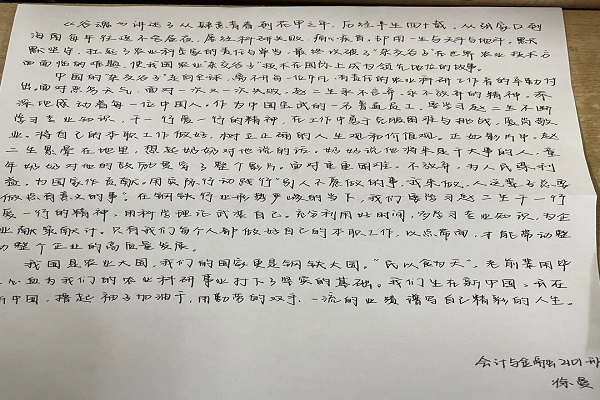 《谷魂》讲述了从肆意青春到花甲之年，历经半生四十载，从张家口到
海南每年往返不舍昼夜，屡经科研失败，痛心疾首，却用一生与天斗与地斗，默
默坚守，扛起了农业科学家的责任与担当，最终攻破了"杂交谷子"在世界农业技术方
面面临的难题，使我国农业"杂交谷子"技术在国际上成为领先地位的故事。
中国的"杂交谷子"走向全球，离不开每一位平凡，有责任的农业科研工作者的辛勤付
出。面对恶劣天气，面对一次又一次失败，赵二生永不言弃，永不放弃的精神，深
深地感动着每一位中国人。作为中国宝武的一名普通员工，要学习赵二生不断
学习专业知识，干一行爱一行的精神，在工作中勇于克服困难与挑战，爱岗敬
业，将自己的本职工作做好，树立正确的人生观和价值观。正如影片中，赵
二生累晕在地里，想起奶奶对他说的话，奶奶说他将来是干大事的人，童
年奶奶对他的鼓励贯穿了整个影片。面对重重困难，不放弃，为人民谋利
益，为国家作贡献，用实际行动践行"别人不愿做的事，我来做，人这辈子总要
做点有意义的事"。在钢铁行业形势严峻的当下，我们要学习赵二生干一行
爱一行的精神，用科学理论武装自己。充分利用好时间，多学习专业知识，为企
业献策献计。只有我们每个人都做好自己的本职工作，以点带面，才能带动整
个整个企业的高质量发展。
我国是农业大国，我们的国家更是钢铁大国。"民以食为天"，老前辈用毕
生心血为我们的农业科研事业打下了坚实的基础。我们生在新中国，长在
新中国，撸起袖子加油干，用勤劳的双手，一流的业绩谱写自己精彩的人生。
会计与金融2101班
徐曼